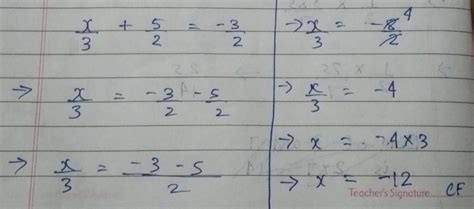 x/3 + 5/2 = -3/2
→ x/3 = -3/2 - 5/2
→ x/3 = -3 - 5/2
→ x/3 = -8/2 4
→ x/3 = -4
→ x = -4×3
→ x = -12
Teacher's Signature........
CF